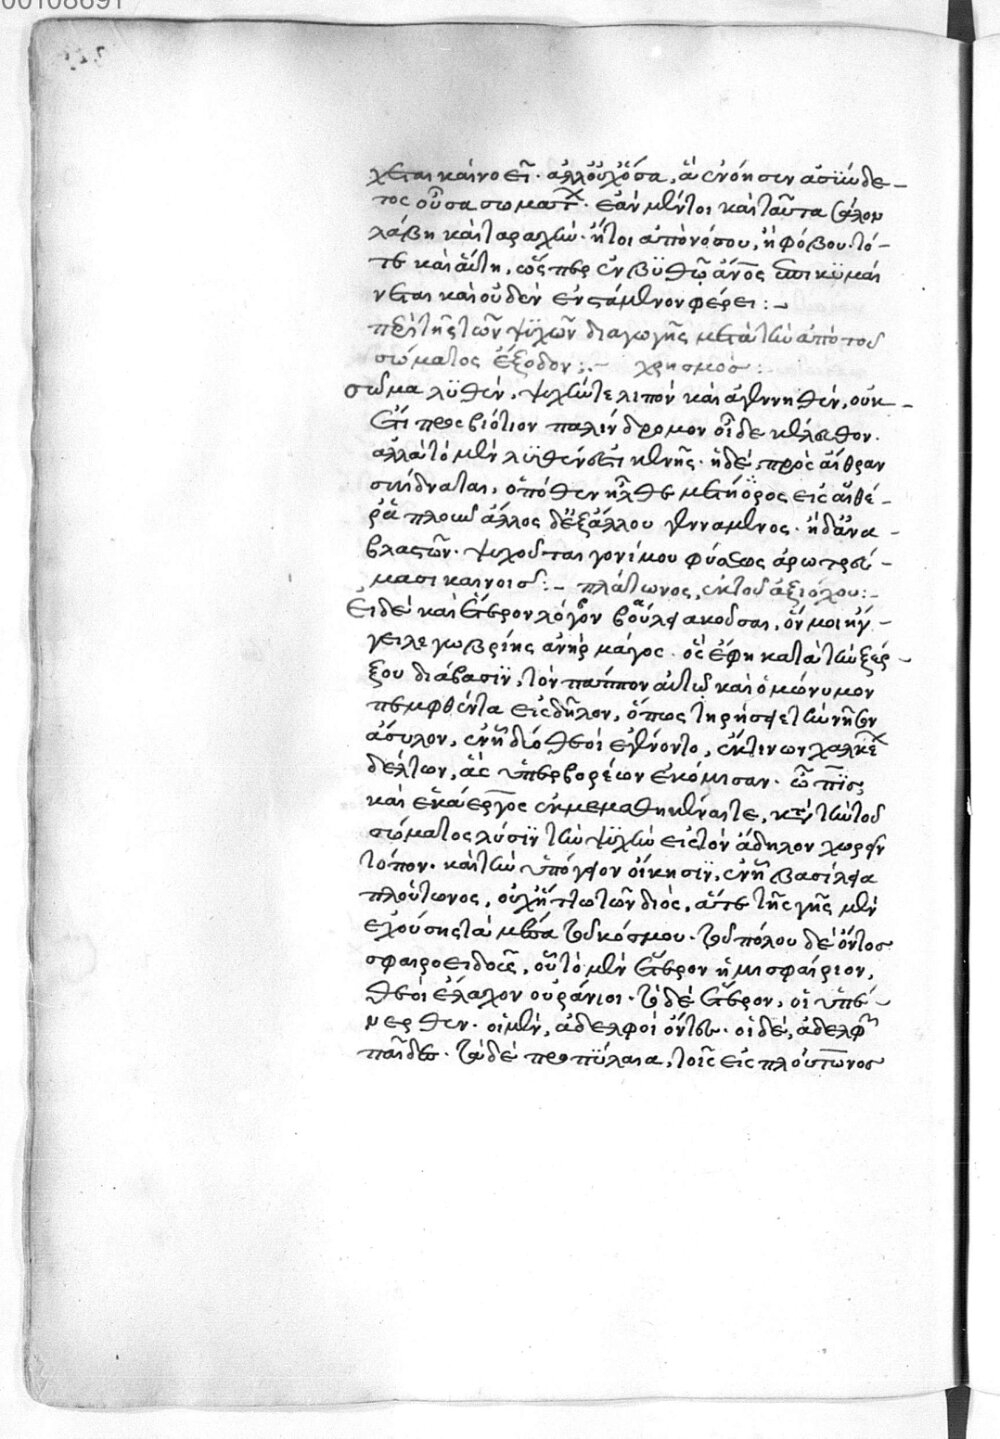 00108691
χεται καὶ νοεῖ· ἀλλ' οὐχ ὅσα, ἃ ἐνόησεν ἀσύνδε-
τος οὖσα σωματι· ἐὰν μέντοι καὶ ταῦτα
λάβη καὶ ταραχὴν· ἤτοι ἀπὸ νόσου, ἢ φόβου· τό-
τε καὶ αὕτη, ὥσπερ ἐν βυθῷ ἄνος ἐπικυμαί
νεται καὶ οὐδὲν ἐνστάμενον φέρει:-
περὶ τῆς τῶν ψυχῶν διαγωγῆς μετὰ τὴν ἀπὸ τοῦ
σώματος ἔξοδον:- χρησμὸς:
σῶμα λυθὲν, ψυχήν τε λιπὸν καὶ ἀγεννηθὲν, οὐκ-
ἔτι πρὸς βιότιον παλινδρομον οἶδε κέλευθον·
ἀλλὰ τὸ μὲν λυθὲν ἐστὶ κενῆς· ἡ δὲ, πρὸς αἴθραν
σκίδναται, ὁπόθεν ἦλθε μετήορος εἰς αἰθέ-
ρα πλοῦν ἄλλος δ' ἐξ ἄλλου γενναμενος· ἠδ' ἀνα-
βλαστῶν· ψυχοῦται γονίμου φύσεως ἀρωτρεύ-
μασι καινοις:- πλάτωνος, ἐκ τοῦ ἀξιόχου:-
Εἰ δὲ καὶ ἕτερον λόγον βούλει ἀκοῦσαι, ὅν μοι ἤγ-
γειλε γωβρίης ἀνὴρ μάγος· ὃς ἔφη κατὰ τὴν ξέρ-
ξου διάβασιν, τὸν πάππον αὐτοῦ καὶ ὁμώνυμον
πεμφθέντα εἰς δῆλον, ὅπως τηρήσειε τὴν νῆσον
ἄσυλον, ἐν ᾗ δύο θεοὶ ἐγένοντο, ἔκ τινων χαλκε
δέλτων, ἃς ὑπερβορέων ἐκόμισαν· ὦπίς
καὶ ἑκάεργος ἐκμεμαθηκέναι τε, μετὰ τὴν τοῦ
σώματος λύσιν τὴν ψυχὴν εἰς τὸν ἄδηλον χωρεῖν
τόπον· καὶ τὴν ὑπόγειον οἴκησιν, ἐν ᾗ βασίλεια
πλούτωνος, οὐχ ἥττω τῶν διὸς, ἅτε τῆς γῆς μὲν
ἐχούσης τὰ μέσα τοῦ κόσμου· τοῦ πόλου δὲ ὄντος
σφαιροειδοῦς, οὗ τὸ μὲν ἕτερον ἡμισφαίριον,
θεοὶ ἔλαχον οὐράνιοι· τὸ δὲ ἕτερον, οἱ ὑπέ-
νερθεν· οἱ μὲν, ἀδελφοὶ ὄντες· οἱ δὲ, ἀδελφῶν
παῖδες· τὰ δὲ προπύλαια, τοῖς εἰς πλούτωνος